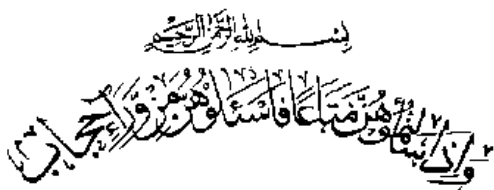 بسم الله الرحمن الرحيم
وإذا سألتموهن متاعا فاسئلوهن من وراء حجاب